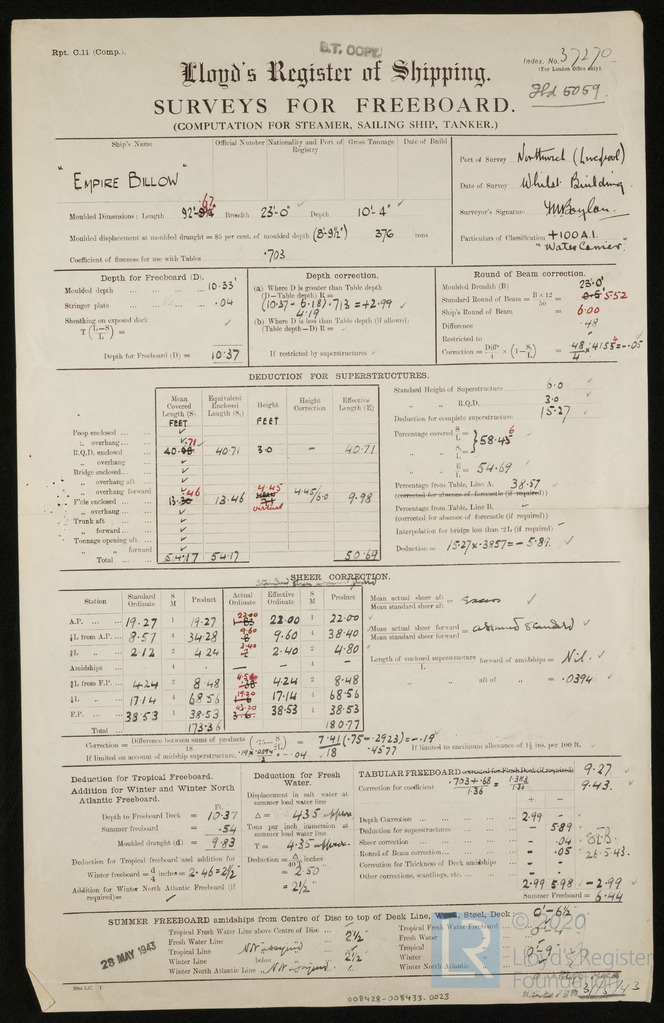 Rpt. C.11 (Comp.).
B.T. COPY
Index. No. 37270
(For London Office only).
Lloyd's Register of Shipping.
SURVEYS FOR FREEBOARD.
(COMPUTATION FOR STEAMER, SAILING SHIP, TANKER.)
Ship's Name Official Number Nationality and Port of Registry Gross Tonnage Date of Build
"EMPIRE BILLOW"
Port of Survey Northwich (Liverpool)
Date of Survey Whilst Building.
Surveyor's Signature
Particulars of Classification +100A.1. "Water Carrier".
Moulded Dimensions: Length 92'- Breadth 23'-0" Depth 10'-4"
Moulded displacement at moulded draught = 85 per cent. of moulded depth (8'-9½") 376 tons
Coefficient of fineness for use with Tables .703
Depth for Freeboard (D).
Moulded depth 10.33'
Stringer plate .04
Sheathing on exposed deck
T(L-S/L) =
Depth for Freeboard (D) = 10.37
Depth correction.
(a) Where D is greater than Table depth
(D-Table depth) R =
(10.37 - 6.18) .713 = +2.99
4.19
(b) Where D is less than Table depth (if allowed)
(Table depth-D) R =
If restricted by superstructures
Round of Beam correction.
Moulded Breadth (B) 23.0'
Standard Round of Beam = B×12/50 = 5.52
Ship's Round of Beam = 6.00
Difference .48
Restricted to
Correction = Diff/4 × (1-S/L) = .48/4 × = -.05
DEDUCTION FOR SUPERSTRUCTURES.
Mean Covered Length (S) Equivalent Enclosed Length (S₁) Height Height Correction Effective Length (E)
FEET FEET
Poop enclosed
" overhang
R.Q.D. enclosed 40.71 40.71 3.0 - 40.71
" overhang
Bridge enclosed
" overhang aft
" overhang forward
F'cle enclosed 13.46 13.46 4.45 virtual 4.45/6.0 9.98
" overhang
Trunk aft
" forward
Tonnage opening aft
" " forward
Total 54.17 54.17 50.69
Standard Height of Superstructure 6.0
" " R.Q.D. 3.0
Deduction for complete superstructure 15.27
Percentage covered S/L = 58.46
" " S₁/L =
" " E/L = 54.69
Percentage from Table, Line A. 38.57
(corrected for absence of forecastle (if required))
Percentage from Table, Line B.
(corrected for absence of forecastle (if required))
Interpolation for bridge less than .2L (if required)
Deduction = 15.27 × .3857 = - 5.89
SHEER CORRECTION.
Station Standard Ordinate S M Product Actual Ordinate Effective Ordinate S M Product
A.P. 19.27 1 19.27 22.00 22.00 1 22.00
⅙L from A.P. 8.57 4 34.28 9.60 9.60 4 38.40
⅓L " 2.12 2 4.24 2.40 2.40 2 4.80
Amidships - 4 - - - 4 -
⅓L from F.P. 4.24 2 8.48 4.24 2 8.48
⅙L " 17.14 4 68.56 17.14 4 68.56
F.P. 38.53 1 38.53 38.53 1 38.53
Total 173.36 180.77
Mean actual sheer aft / Mean standard sheer aft = excess
Mean actual sheer forward / Mean standard sheer forward = assumed standard
Length of enclosed superstructure/L forward of amidships = Nil.
" " aft of " = .0394
Correction = Difference between sums of products/18 (.75 - S/2L) = 7.41/18 (.75 - .2923) = -.19
.4577
If limited on account of midship superstructure. = -.04 If limited to maximum allowance of 1½ ins. per 100 ft.
Deduction for Tropical Freeboard.
Addition for Winter and Winter North Atlantic Freeboard.
Ft.
Depth to Freeboard Deck = 10.37
Summer freeboard = .54
Moulded draught (d) = 9.83
Deduction for Tropical freeboard and addition for Winter freeboard = d/4 inches = 2.46 = 2½"
Addition for Winter North Atlantic Freeboard (if required) =
Deduction for Fresh Water.
Displacement in salt water at summer load water line
Δ = 435 approx.
Tons per inch immersion at summer load water line
T = 4.35 approx.
Deduction = Δ/40T inches
= 2.50
= 2½"
TABULAR FREEBOARD corrected for Flush Deck (if required) 9.27
Correction for coefficient .703 + .68/1.36 = 1.383/1.36 9.43
+ -
Depth Correction 2.99 -
Deduction for superstructures - 5.89
Sheer correction - .04
Round of Beam correction - .05
Correction for Thickness of Deck amidships - -
Other corrections, scantlings, etc. - -
2.99 5.98 -2.99
Summer Freeboard = 6.44
26.5.43.
SUMMER FREEBOARD amidships from Centre of Disc to top of Deck Line, Wood, Steel, Deck: 0'-6½"
Tropical Fresh Water Line above Centre of Disc
Fresh Water Line " " 2½"
Tropical Line " " Not assigned
Winter Line below " 2½"
Winter North Atlantic Line " " Not assigned.
Tropical Fresh Water Freeboard
Fresh Water "
Tropical "
Winter " 0'-9"
Winter North Atlantic "
28 MAY 1943
© 2020
LR
Lloyd's Register
Foundation
008428-008433-0023